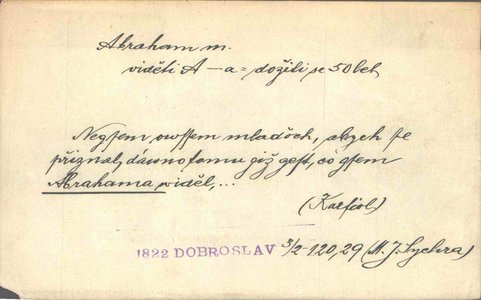 Abraham m.
viděti A–a = dožíti se 50 let
Negsem owssem mladoch, abych se
přiznal, dáwno tomu giž gest, co gsem
Abrahama widěl,...
(Karfiol)
1822 DOBROSLAV 3/2-120,29 (M. J. Sychra)